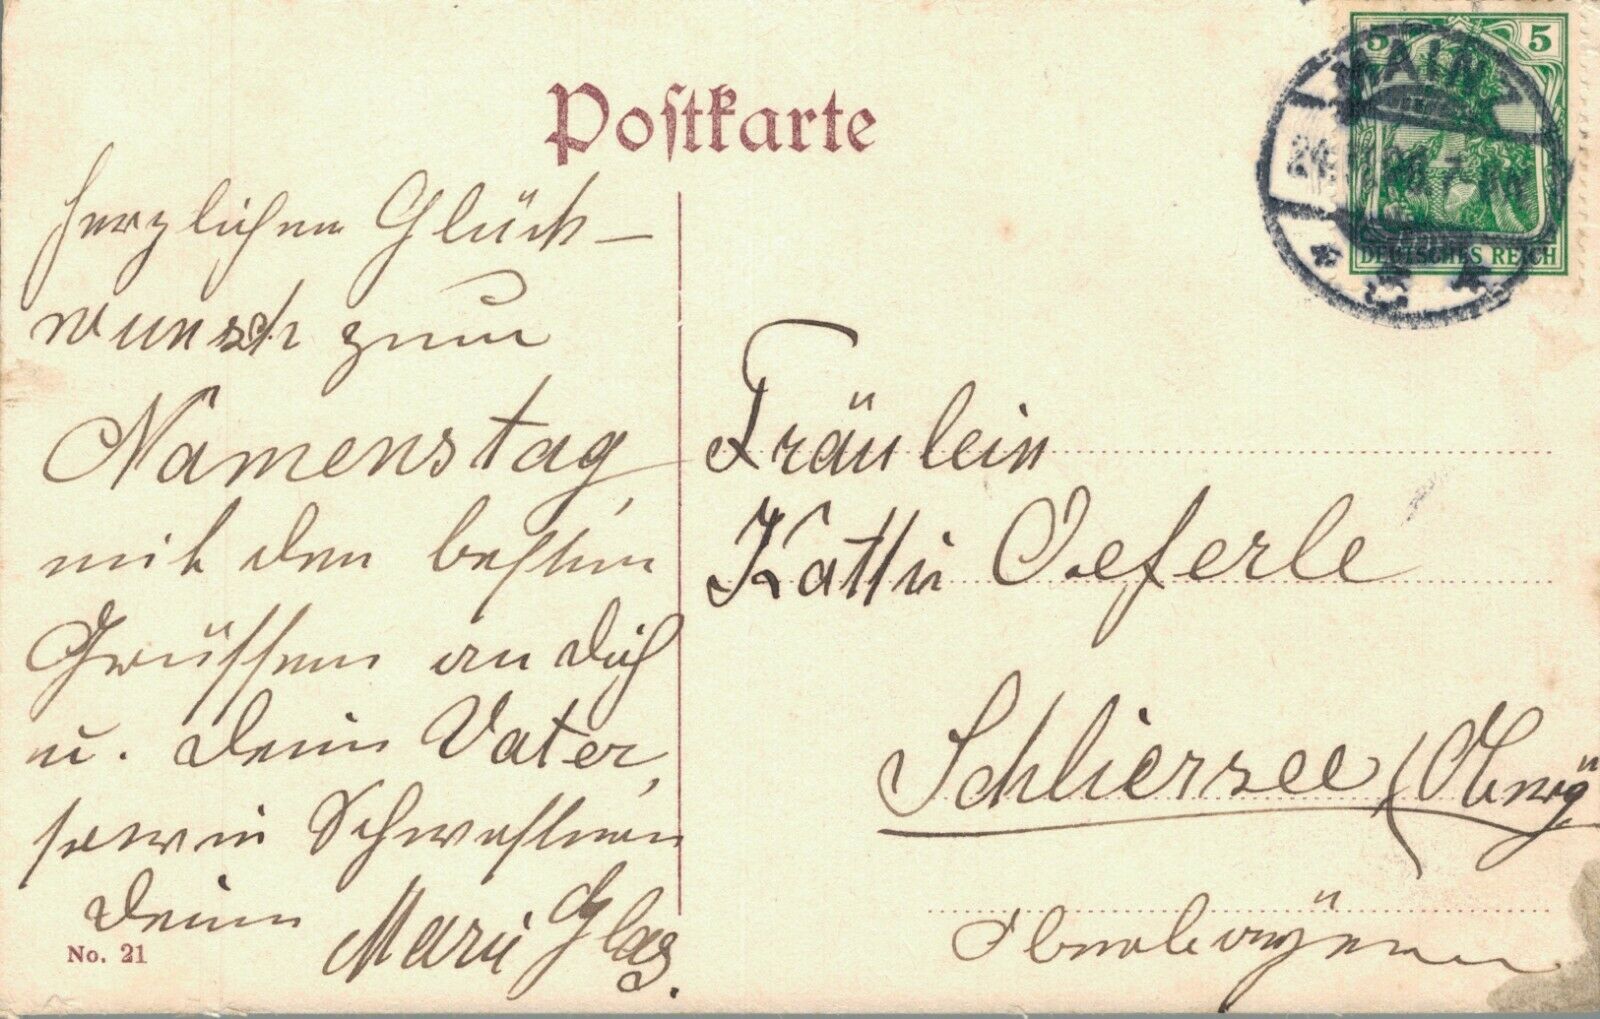 Postkarte
5 5
MAINZ
DEUTSCHES REICH
herzlichen Glück-
wunsch zum
Namenstag,
mit den besten
Grüssen an Dich
u. Deinen Vater,
sowie Schwestern
Deine Marie Glas.
No. 21
Fräulein
Kathi Oeferle
Schliersee
Oberbayern